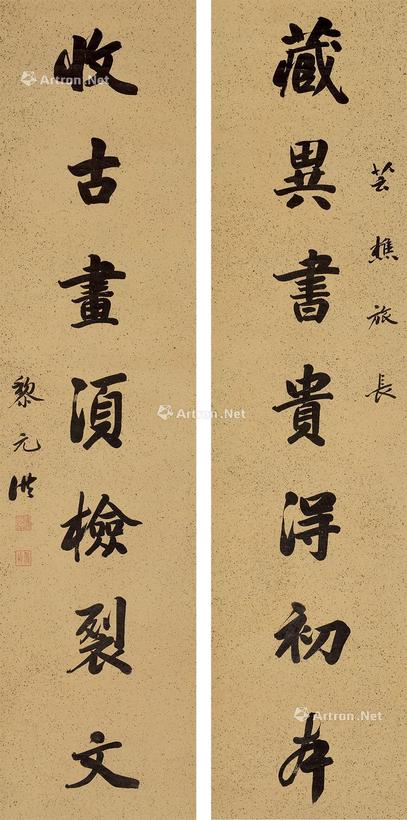 芸樵旅長
藏異書貴得初本
收古畫須檢裂文
黎元洪
Artron.Net
Artron.Net
Artron.Net